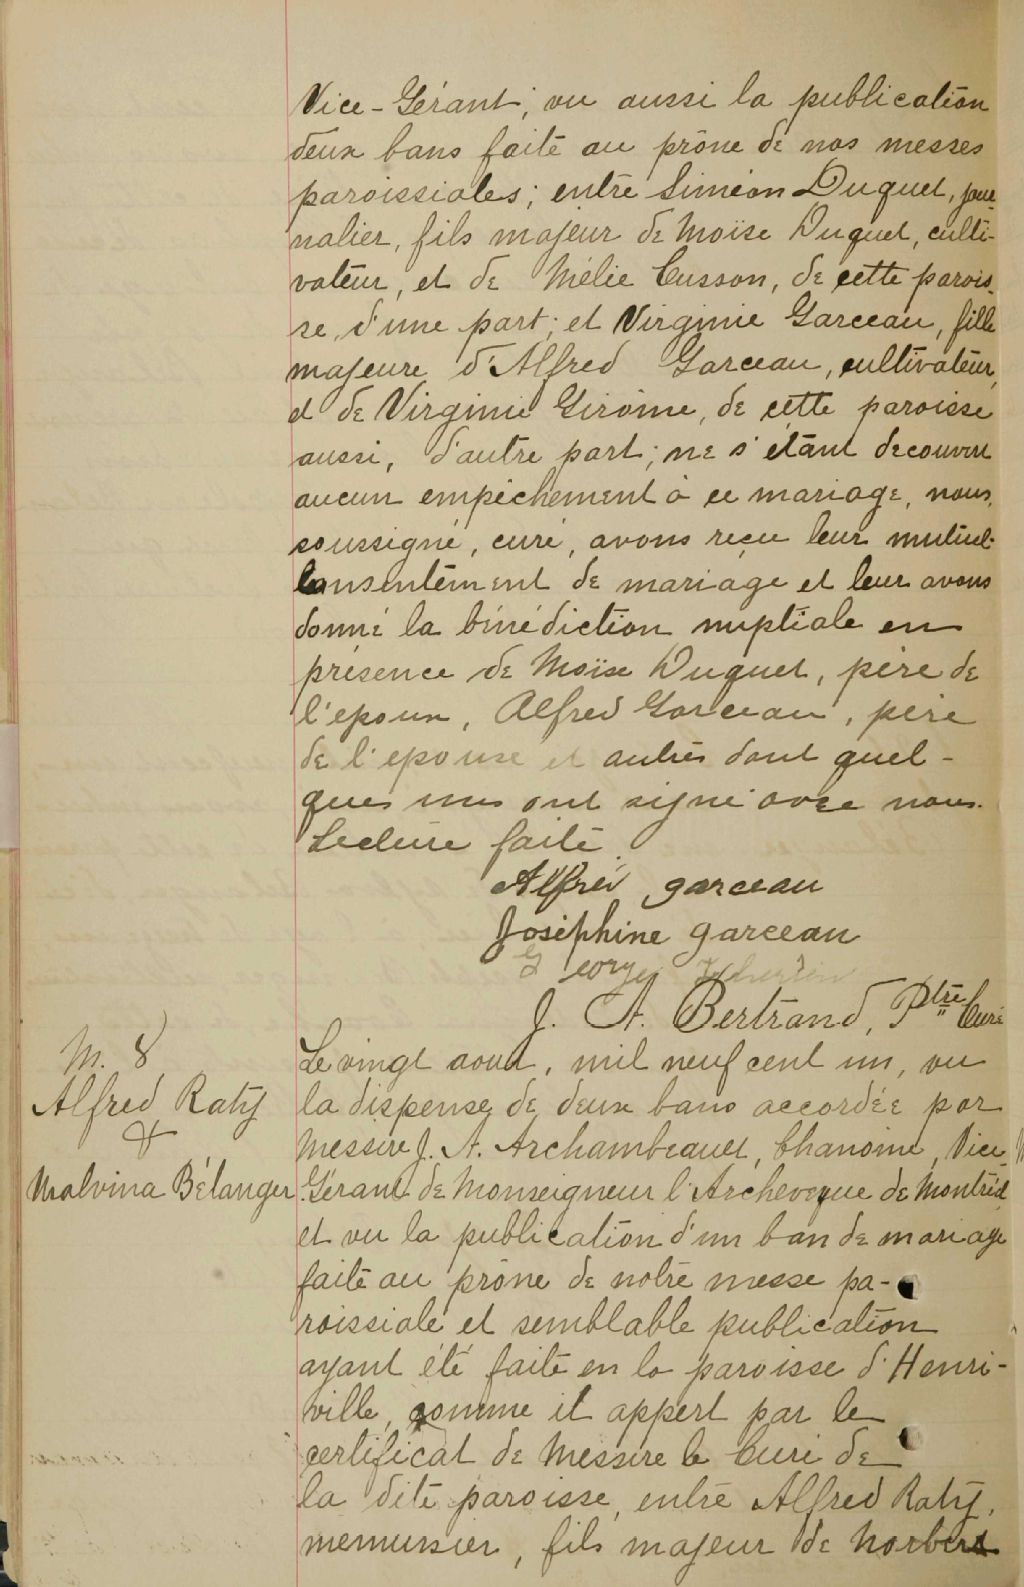 Vice-Gérant; vu aussi la publication
deux bans faite au prône de nos messes
paroissiales; entre Siméon Duquet, jour-
nalier, fils majeur de Moïse Duquet, culti-
vateur, et de Mélie Cusson, de cette parois-
se, d'une part; et Virginie Garceau, fille
majeure d'Alfred Garceau, cultivateur,
et de Virginie Girôme, de cette paroisse
aussi, d'autre part; ne s'étant decouvert
aucun empêchement à ce mariage, nous,
soussigné, curé, avons reçu leur mutuel
Consentement de mariage et leur avons
donné la bénédiction nuptiale en
présence de Moïse Duquet, père de
l'epoux, Alfred Garceau, père
de l'epouse et autres dont quel-
ques uns ont signé avec nous.
Lecture faite.
Alfred garceau
Joséphine garceau
George
J. A. Bertrand, Ptre Curé
M. 8
Alfred Raty
&
Malvina Bélanger
Le vingt aout, mil neuf cent un, vu
la dispense de deux bans accordée par
Messire J. A. Archambeault, Chanoine, Vice-
Gérant de Monseigneur l'Archeveque de Montréal,
et vu la publication d'un ban de mariage
faite au prône de notre messe pa-
roissiale et semblable publication
ayant été faite en la paroisse d'Henri-
ville, comme il appert par le
certificat de Messire le Curé de
la dite paroisse, entre Alfred Raty,
memuisier, fils majeur de Norbert